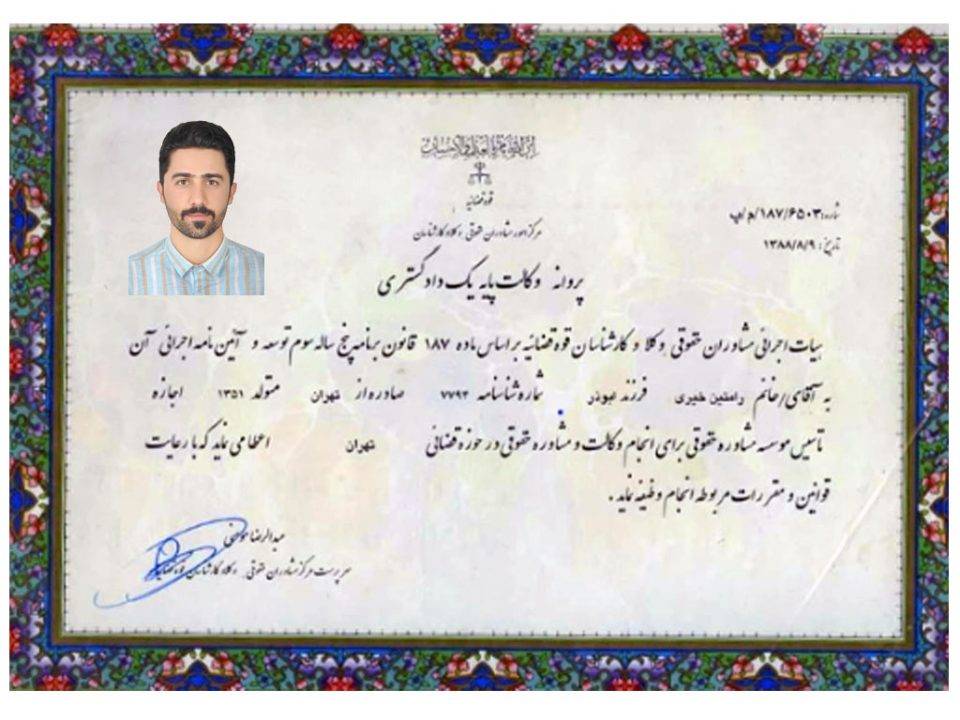 ان الله یامر بالعدل والاحسان
قوه قضائیه
مرکز امور مشاوران حقوقی وکلا و کارشناسان
شماره: ۱۸۷/۶۵۰۳/م/پ
تاریخ: ۱۳۸۸/۸/۹
پروانه وکالت پایه یک دادگستری
هیات اجرائی مشاوران حقوقی وکلا و کارشناسان قوه قضائیه براساس ماده ۱۸۷ قانون برنامه پنج ساله سوم توسعه و آئین نامه اجرائی آن
به آقای/خانم رامتین خیری فرزند ابوذر شماره شناسنامه ۷۷۹۴ صادره از تهران متولد ۱۳۵۱ اجازه
تاسیس موسسه مشاوره حقوقی برای انجام وکالت و مشاوره حقوقی در حوزه قضائی تهران اعطا می نماید که با رعایت
قوانین و مقررات مربوطه انجام وظیفه نماید.
عبدالرضا
سرپرست مرکز مشاوران حقوقی وکلا و کارشناسان قوه قضائیه